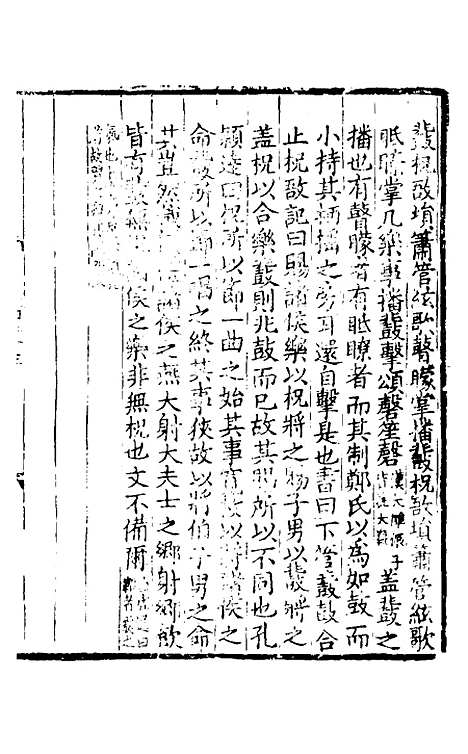 鼗柷敔塤簫管絃歌瞽矇掌播鼗柷敔塤簫管絃歌
眡瞭掌凡樂事播鼗擊頌磬笙磬 蓋鼗之
播也有瞽矇者有眡瞭者而其制鄭氏以為如鼓而
小持其柄搖之旁耳還自擊是也書曰下管鼗鼓合
止柷敔記曰賜諸侯樂以柷將之賜子男以鼗將之
蓋柷以合樂鼗則兆鼓而已故其賜所以不同也孔
穎達曰柷所以節一曲之始其事寬故以將諸侯之
命鼗所以節一唱之終其事狹故以將伯子男之命
其豈然 諸侯之燕大射大夫士之鄉射鄉飲
皆有鼗無 侯之樂非無柷也文不備爾